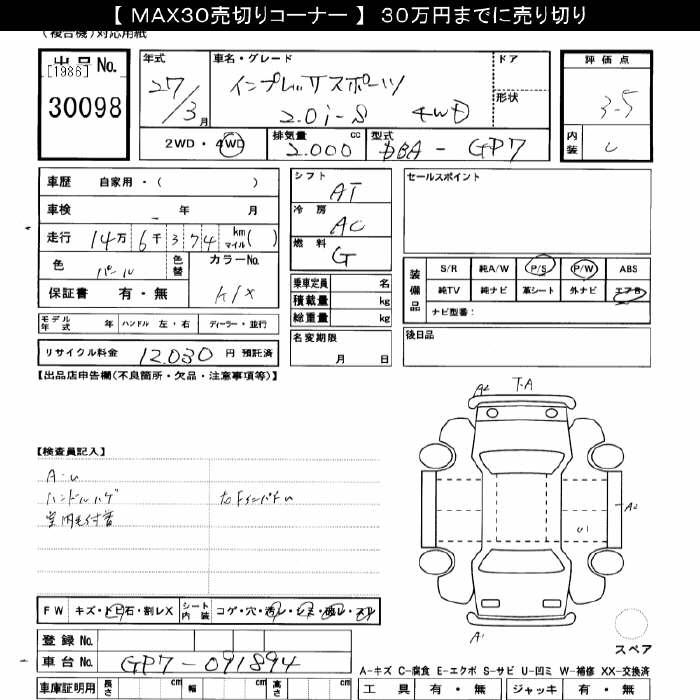 【 MAX30売切りコーナー 】 30万円までに売り切り
(複合機)対応用紙
出品 No.
[1986]
30098
年式
27/3月
車名・グレード
インプレッサスポーツ
2.0i-S 4WD
ドア
形状
評価点
3.5
内装
2WD・4WD
排気量 cc
2.000
型式
DBA - GP7
車歴 自家用・( )
車検 年 月
走行 14万 6千 3 7 4 km マイル( )
色 パール 色替
カラーNo.
K1X
保証書 有・無
モデル年式 年 ハンドル 左・右 ディーラー・並行
リサイクル料金 12.030 円 預託済
シフト AT
冷房 AC
燃料 G
乗車定員 名
積載量 kg
総重量 kg
名変期限
月 日
セールスポイント
装備品
S/R 純A/W P/S P/W ABS
純TV 純ナビ 革シート 外ナビ エアB
ナビ型番:
後日品
【出品店申告欄(不良箇所・欠品・注意事項等)】
【検査員記入】
A-U
ハンドルハゲ
室内毛付着
A2 T-A
A2
U1
A1
FW キズ・トビ石・割レX シート内装 コゲ・穴・汚レ・シミ・破レ・スレ
登録 No.
車台 No. GP7-091894
スペア
A-キズ C-腐食 E-エクボ S-サビ U-凹ミ W-補修 XX-交換済
車庫証明用 長さ cm 幅 cm 高さ cm
工具 有・無 ジャッキ 有・無